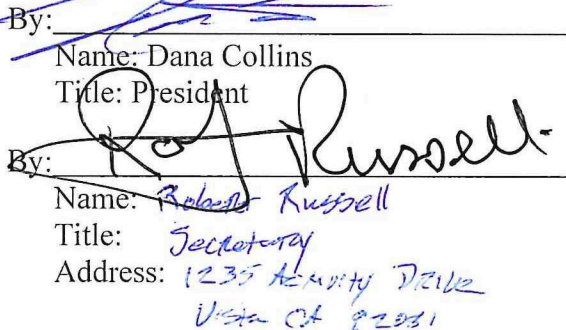 By:
Name: Dana Collins
Title: President
By: Russell
Name: Robert Russell
Title: Secretary
Address: 1235 Activity Drive
Vista CA 92081